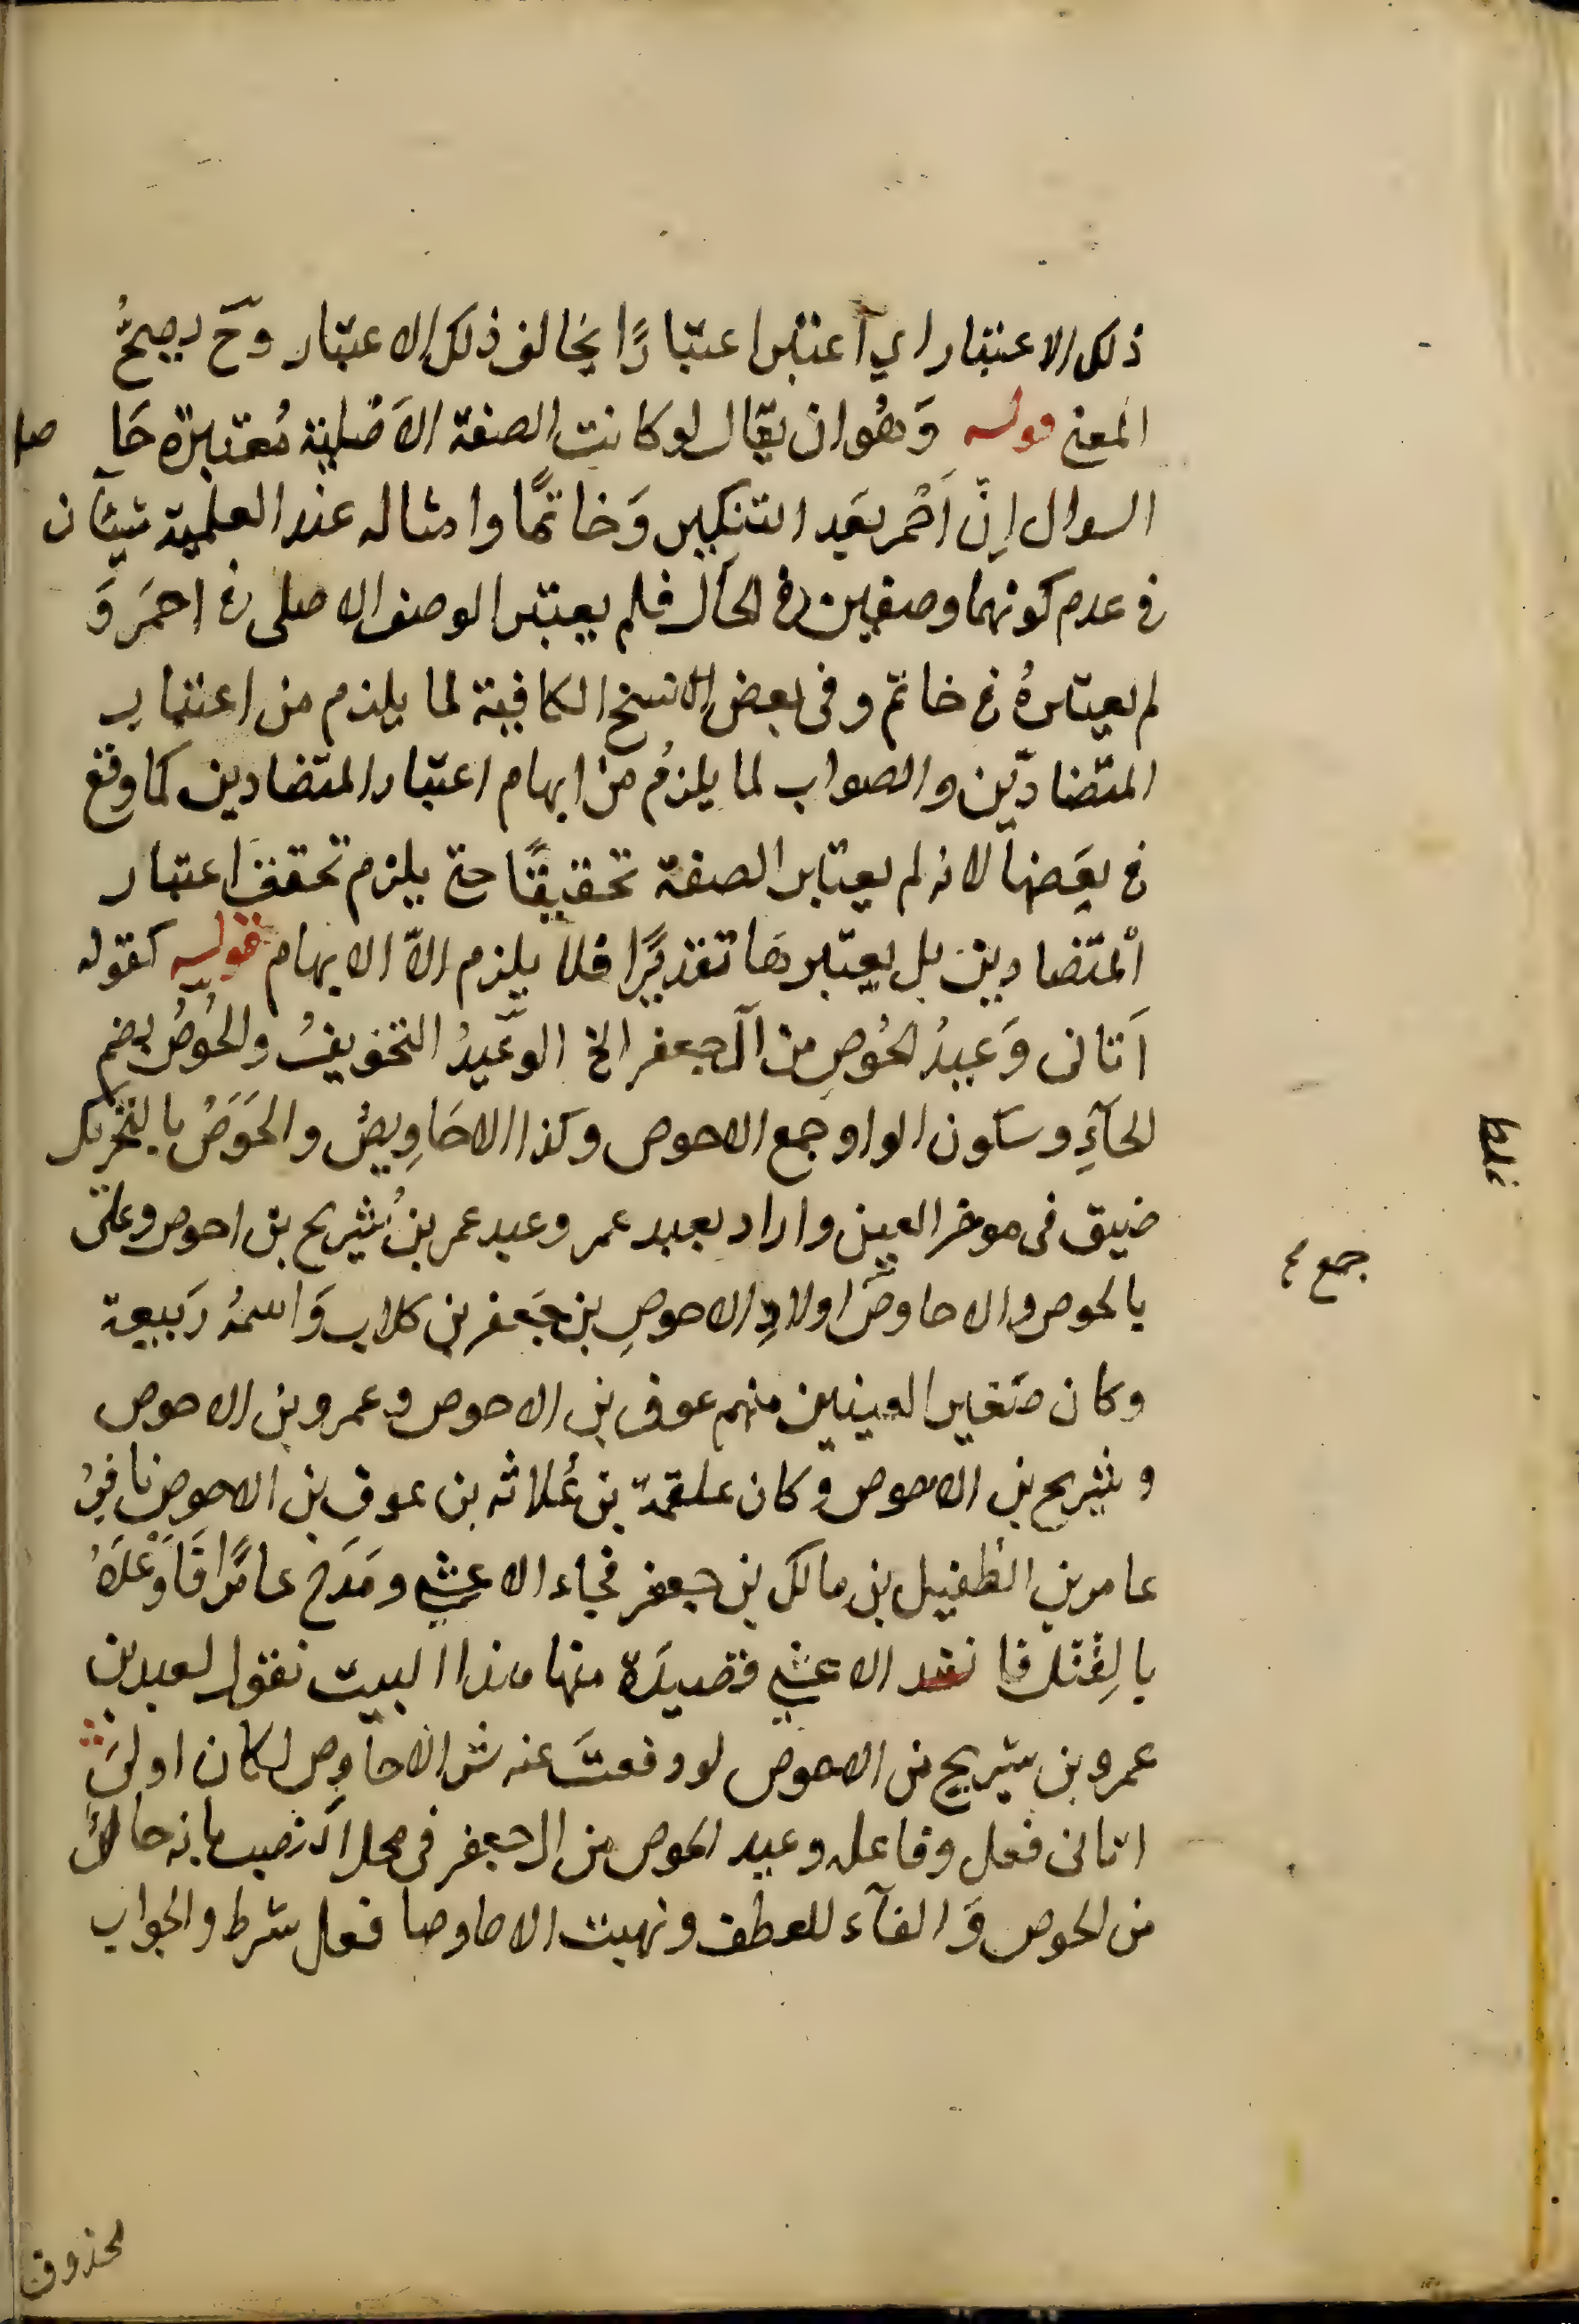 ذلك الاعتبار اي اعتبر اعتبارًا يخالف ذلك الاعتبار وح يصحُّ
المعنى قوله وَهُو ان يقال لو كانت الصفة الاَصْلية مُعتبرة حَا صل
السوال اِنّ اَحْمر بعَد التنكير وَخاتمًا وامثاله عند العلمية شيئان
فى عدم كونهما وصفين فى الحال فلم يعتبر الوصف الاصلى فى احمَر وَ
لم يعتبرهُ فى خاتم وفى بعض النسخ الكافية لما يلزم من اعتبار
المتضادّين والصواب لما يلزمُ من ايهام اعتبار المتضادين كما وقع
فى بعَضها لانه لم يعتبر الصفة تحقيقًا حتى يلزم تحقق اعتبار
المتضادين بل يعتبرها تقديرًا فلا يلزم الاّ الايهام قوله كقوله
اَتانى وَعيدُ الحُوصِ من آل جعفر الخ الوعَيدُ التخويفُ والحُوصُ بضم
الحآءِ وسكون الواو جمع الاحوص وكذا الاحَاوِيصُ والحَوَصُ بالتحريك
ضيق فى موخر العين واراد بعبد عمر وعبد عمر بن شُريح بن احوص وعلى
بالحوص والاحاوصَ اولادِ الاحوصِ بن جَعفر بن كلاب وَاسمهُ رَبيعة
وكان صَغير العينين منهم عوف بن الاحوص وعمرو بن الاحوص
وشريح بن الاحوص وكان علقمة بن عُلاثه بن عوف بن الاحوص نافرُ
عامر بن الطُفيل بن مالك بن جعفر فجاء الاعشى ومَدَح عامرًا فَاَوْعَدَهُ
بالقَتل فا نفد الاعشى قصيدَة منها هذا البيت نقول لعبد بن
عمرو بن شريح بن الاحوص لو دفعتَ عنه شر الاحاوِص لكان اولىَ
اتانى فعل وفاعله وعيد الحوص من ال جعفر فى محل النصب بانه حالٌ
من الحوص وَالفآء للعطف ونهيت الاحاوصا فعل شرط والجواب
محذوف
غلط
جمع ٤